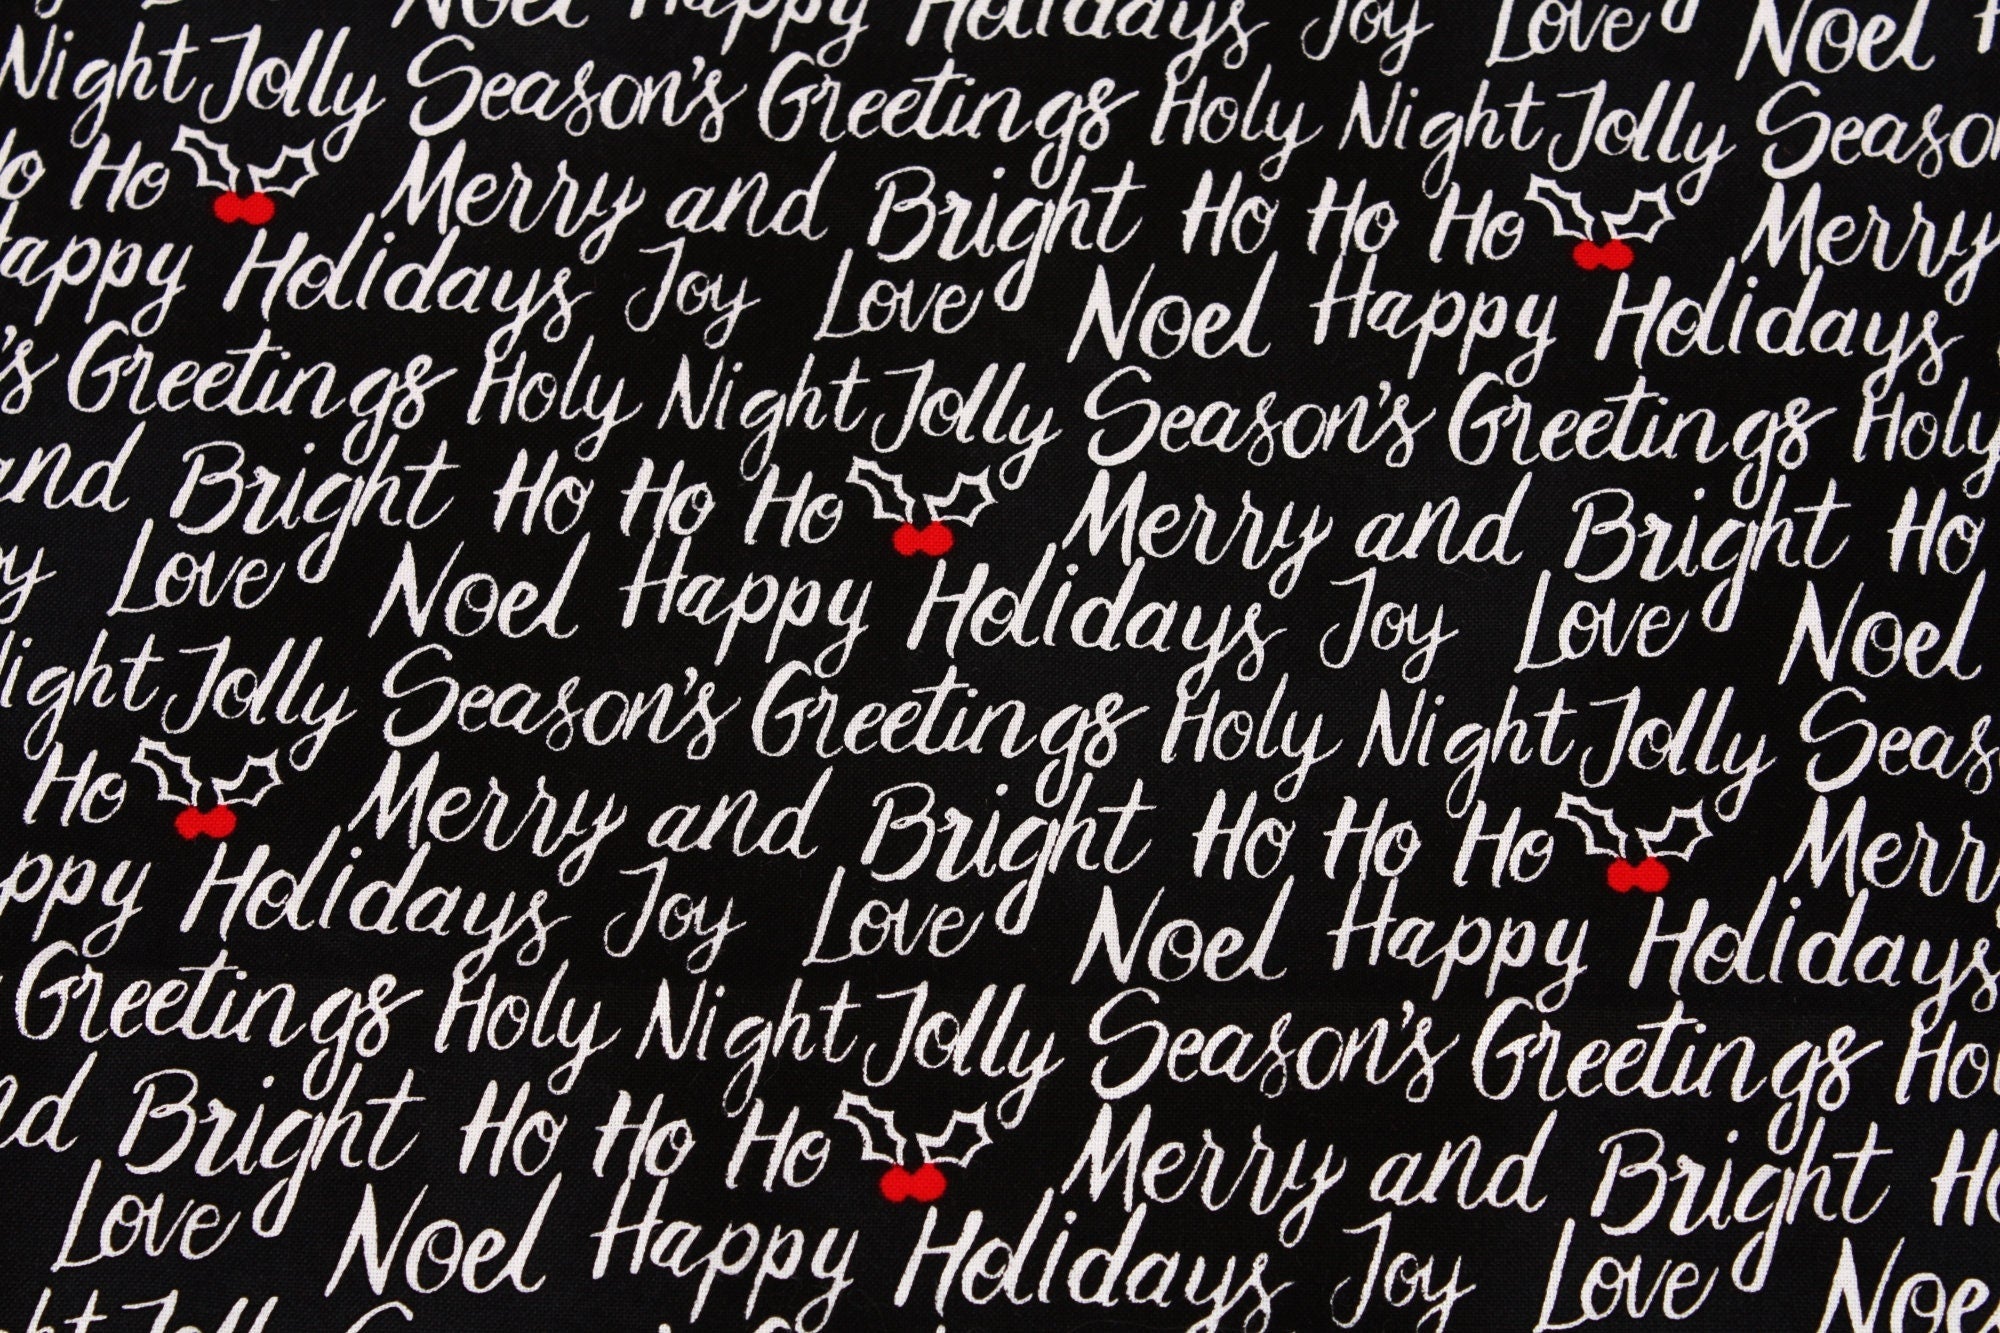 Noel Happy Holidays Joy Love Noel
Night Jolly Season's Greetings Holy Night Jolly Seaso
Ho Merry and Bright Ho Ho Ho Merry
appy Holidays Joy Love Noel Happy Holidays
's Greetings Holy Night Jolly Season's Greetings Holy
and Bright Ho Ho Ho Merry and Bright Ho
y Love Noel Happy Holidays Joy Love Noel
ight Jolly Season's Greetings Holy Night Jolly Seas
Ho Merry and Bright Ho Ho Ho Merr
ppy Holidays Joy Love Noel Happy Holidays
Greetings Holy Night Jolly Season's Greetings Ho
d Bright Ho Ho Ho Merry and Bright H
Love Noel Happy Holidays Joy Love Noe